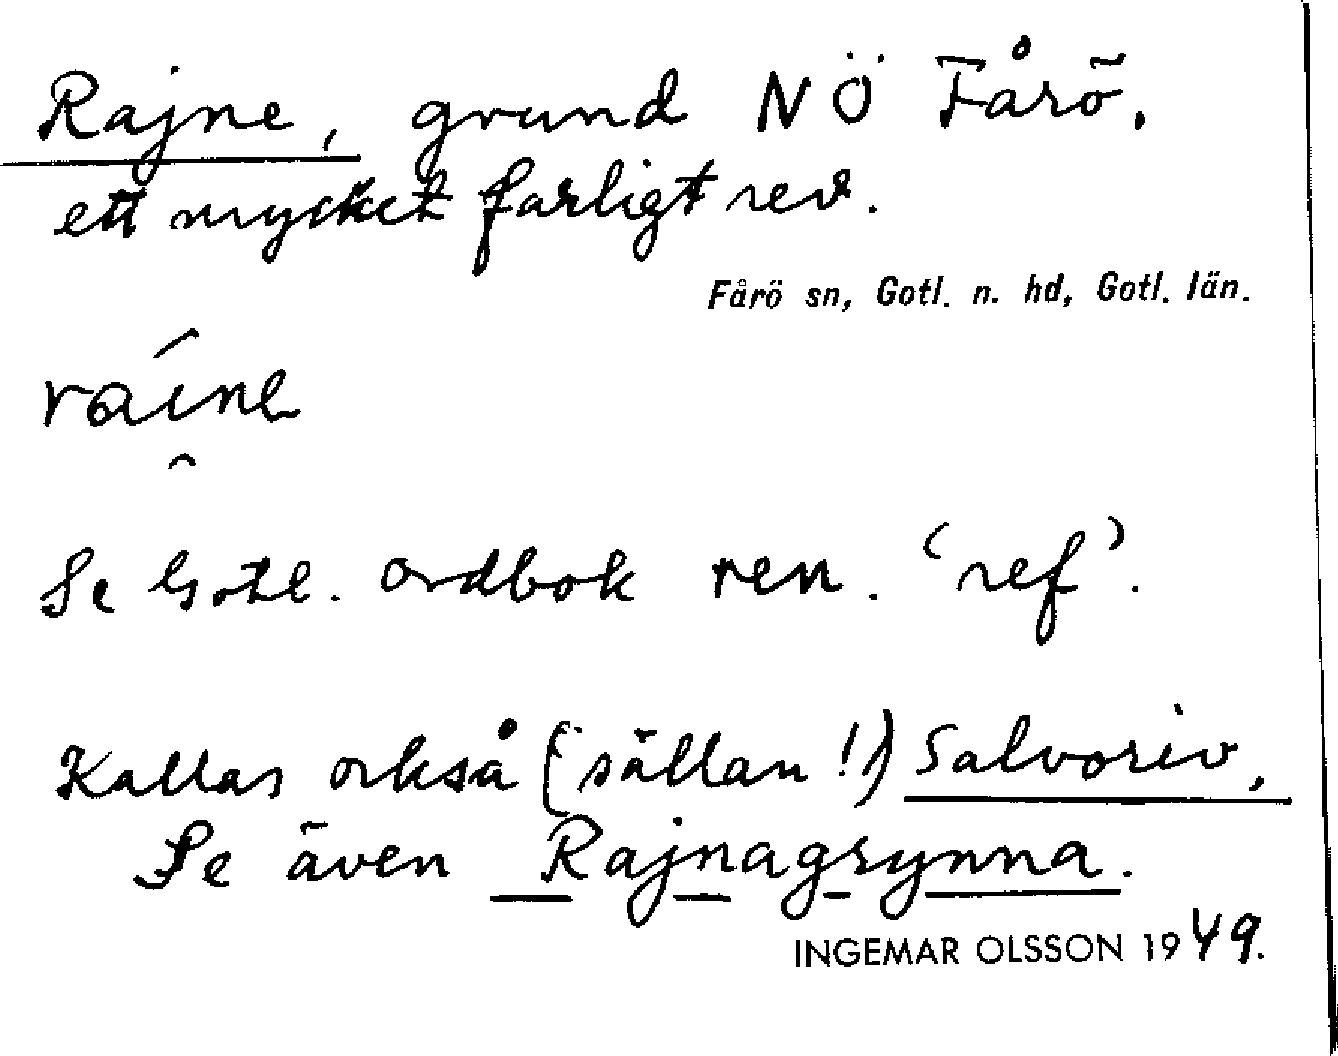 Rajne, grund NÖ Fårö,
ett mycket farligt rev.
Fårö sn, Gotl. n. hd, Gotl. län.
Se Gotl. ordbok ren. 'ref'.
Kallas också (sällan!) Salvoriv,
Se även Rajnagrynna.
INGEMAR OLSSON 1949.